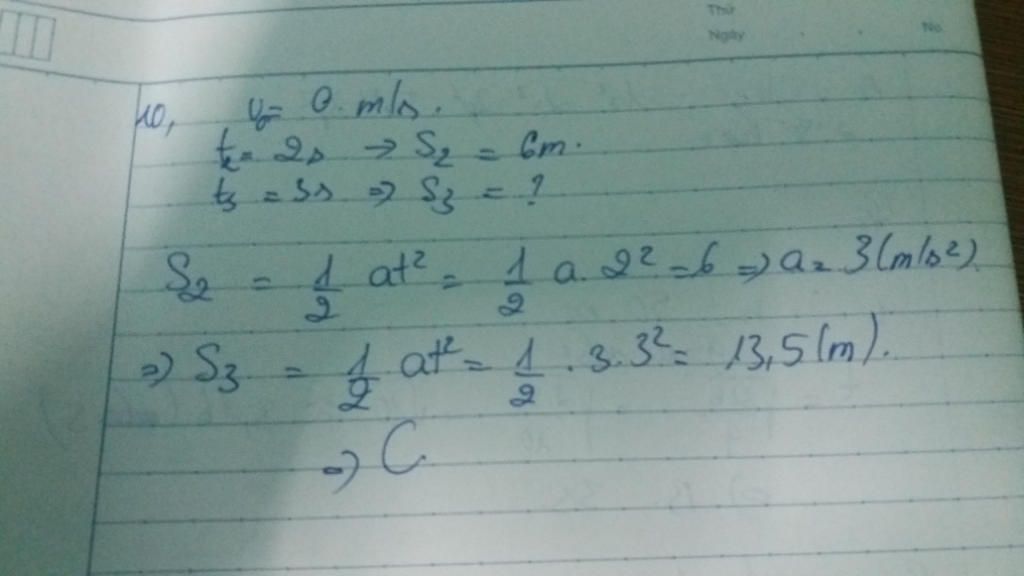 Thứ
Ngày No.
10, v₀ = 0 m/s.
t₂ = 2s → S₂ = 6m.
t₃ = 3s ⇒ S₃ = ?
S₂ = 1/2 at² = 1/2 a. 2² = 6 ⇒ a = 3 (m/s²).
⇒ S₃ = 1/2 at² = 1/2 . 3. 3² = 13,5 (m).
⇒ C